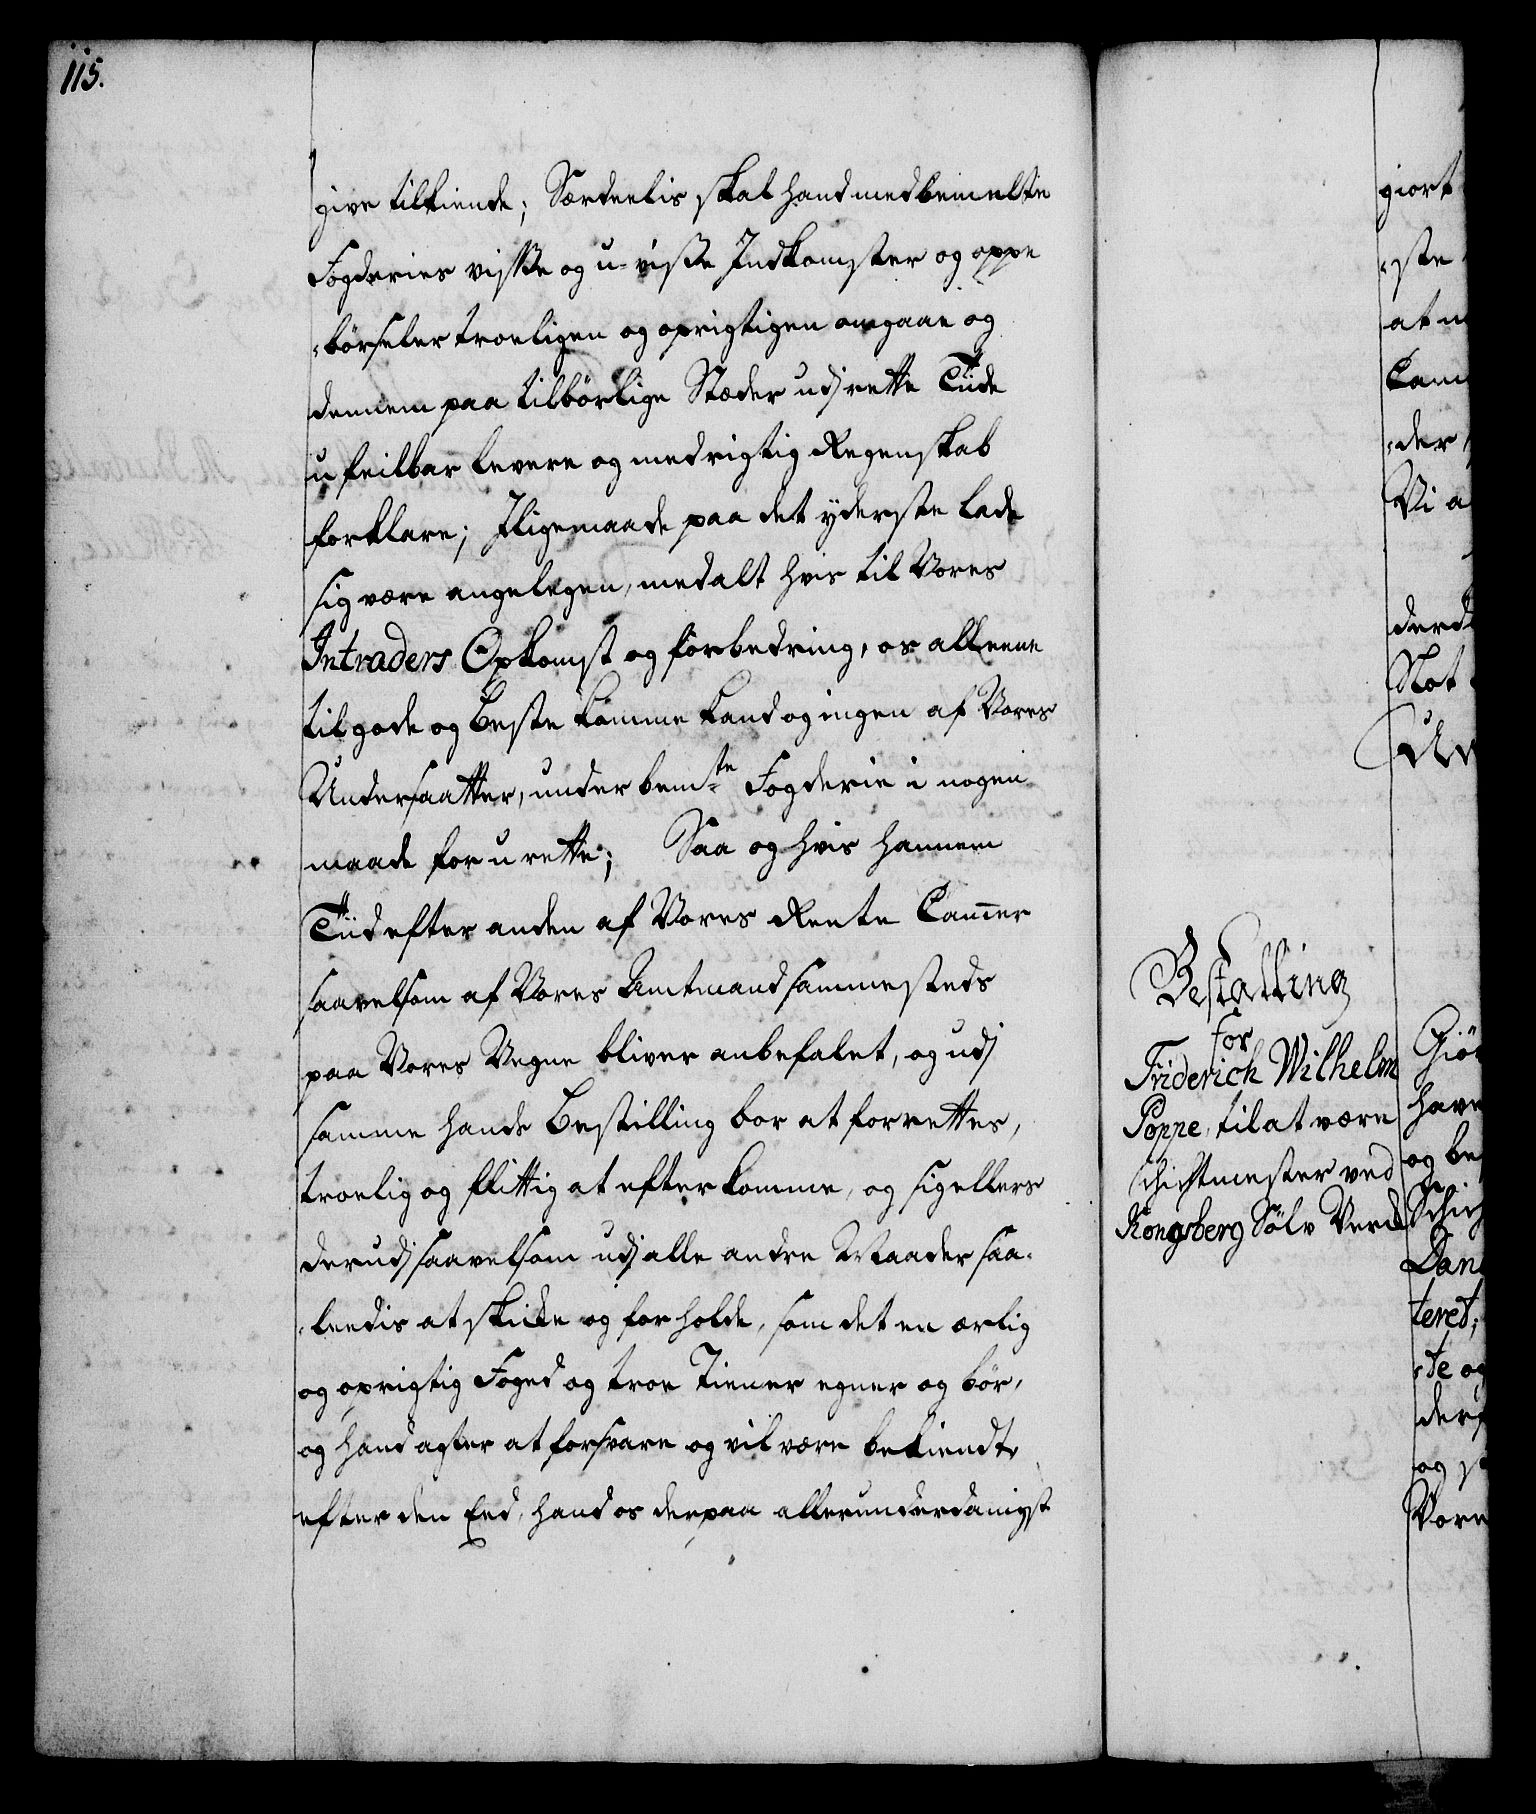 115.
give tilkiende; Særdeelis skal hand med bemelte
Fogderies visse og u-visse Indkomster og oppe
-börseler troeligen og oprigtigen omgaae og
dennem paa tilbörlige Stæder udj rette Tiide
u feilbar levere og med rigtig Regenskab
forklare; Iligemaade paa det yderste lade
sig være angelegen, med alt hvis til Vores
Intraders Opkomst og forbedring, os alleene
til gode og beste komme kand og ingen af Vores
Undersaatter, under bemte Fogderie i nogen
maade for u rette; Saa og hvis hannem
Tiid efter anden af Vores Rente Cammer
saavelsom af Vores Amtmand sammesteds
paa Vores Vegne bliver anbefalet, og udj
samme hands bestilling bor at forrettes,
troelig og flittig at efterkomme, og sig ellers
derudj saavelsom udj alle andre Maader saa-
-leedis at skikke og forholde, som det en ærlig
og oprigtig Foged og troe Tiener egner og bör,
og hand agter at forsvare og vil være bekiendt,
efter den Eed, hand os derpaa allerunderdanigst
Bestalling
for
Friderich Wilhelm
Poppe, til at være
Schichtmester ved
Kongsberg Sölv Verck
giort
-ste
at m
Cam
-der
Vi a
derd
Not
giör
have
og be
Schich
Dan
teret;
-te og
derf
og s
Vore